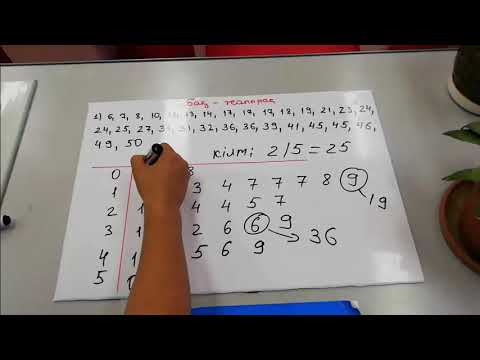 сабақ - жапырақ
1) 6, 7, 8, 10, 13, 14, 17, 17, 17, 18, 19, 21, 23, 24,
24, 25, 27, 31, 31, 32, 36, 36, 39, 41, 45, 45, 46,
49, 50
кілті: 2/5 = 25
0 8
1 3 4 7 7 7 8 9
19
2 1 4 4 5 7
3 1 2 6 6 9
36
4 1 5 6 9
5